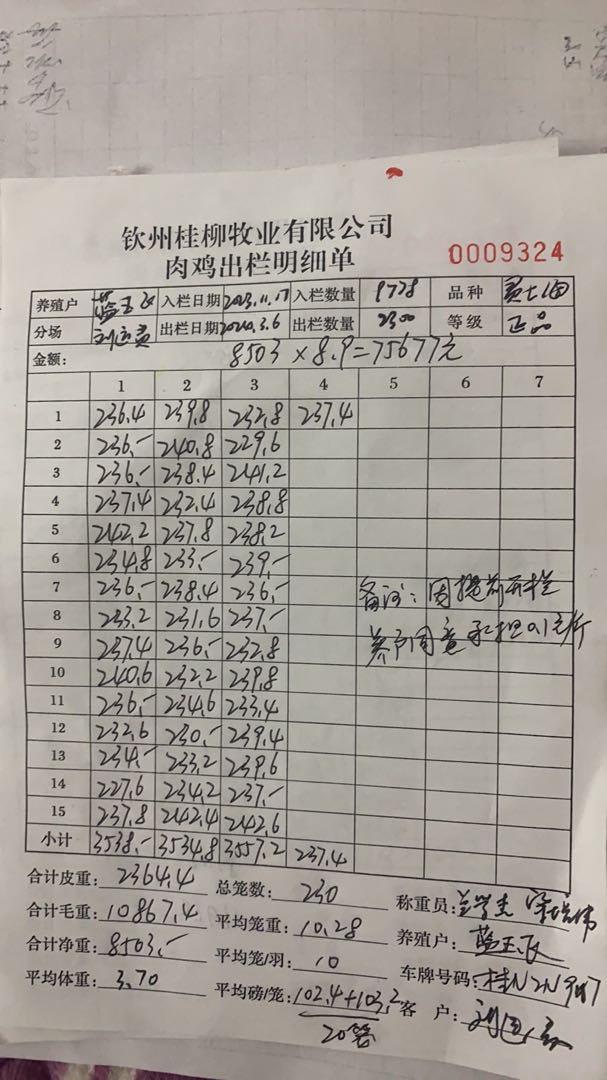 钦州桂柳牧业有限公司
肉鸡出栏明细单 0009324
养殖户 蓝玉飞 入栏日期 2023.11.17 入栏数量 品种
分场 出栏日期 2024.3.6 出栏数量 2300 等级 正品
金额: 8503×8.9=75677元
1 2 3 4 5 6 7
1 236.4 239.8 232.8 237.4
2 236.- 240.8 229.6
3 236.- 238.4 241.2
4 237.4 232.4 238.8
5 242.2 237.8 238.2
6 234.8 233.- 239.-
7 236.- 238.4 236.-
8 233.2 231.6 237.-
9 237.4 236.- 232.8
10 240.6 232.2 239.8
11 236.- 234.6 233.4
12 232.6 230.- 239.4
13 234.- 233.2 239.6
14 227.6 234.2 237.-
15 237.8 242.4 242.6
小计 3538.- 3534.8 3557.2 237.4
备注: 因提前开栏
养户同意承担0.1元/斤
合计皮重: 2364.4 总笼数: 230 称重员:
合计毛重: 10867.4 平均笼重: 10.28 养殖户: 蓝玉飞
合计净重: 8503.- 平均笼/羽: 10 车牌号码:
平均体重: 3.70 平均磅/笼: 102.4+103.2 客 户:
20笼